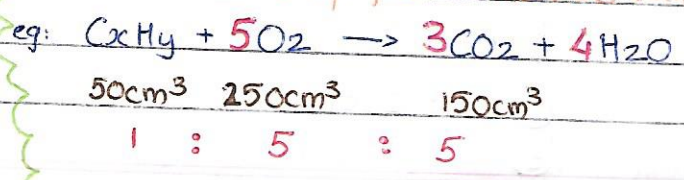 eg: CxHy + 5O2 → 3CO2 + 4H2O
50cm³ 250cm³ 150cm³
1 : 5 : 5